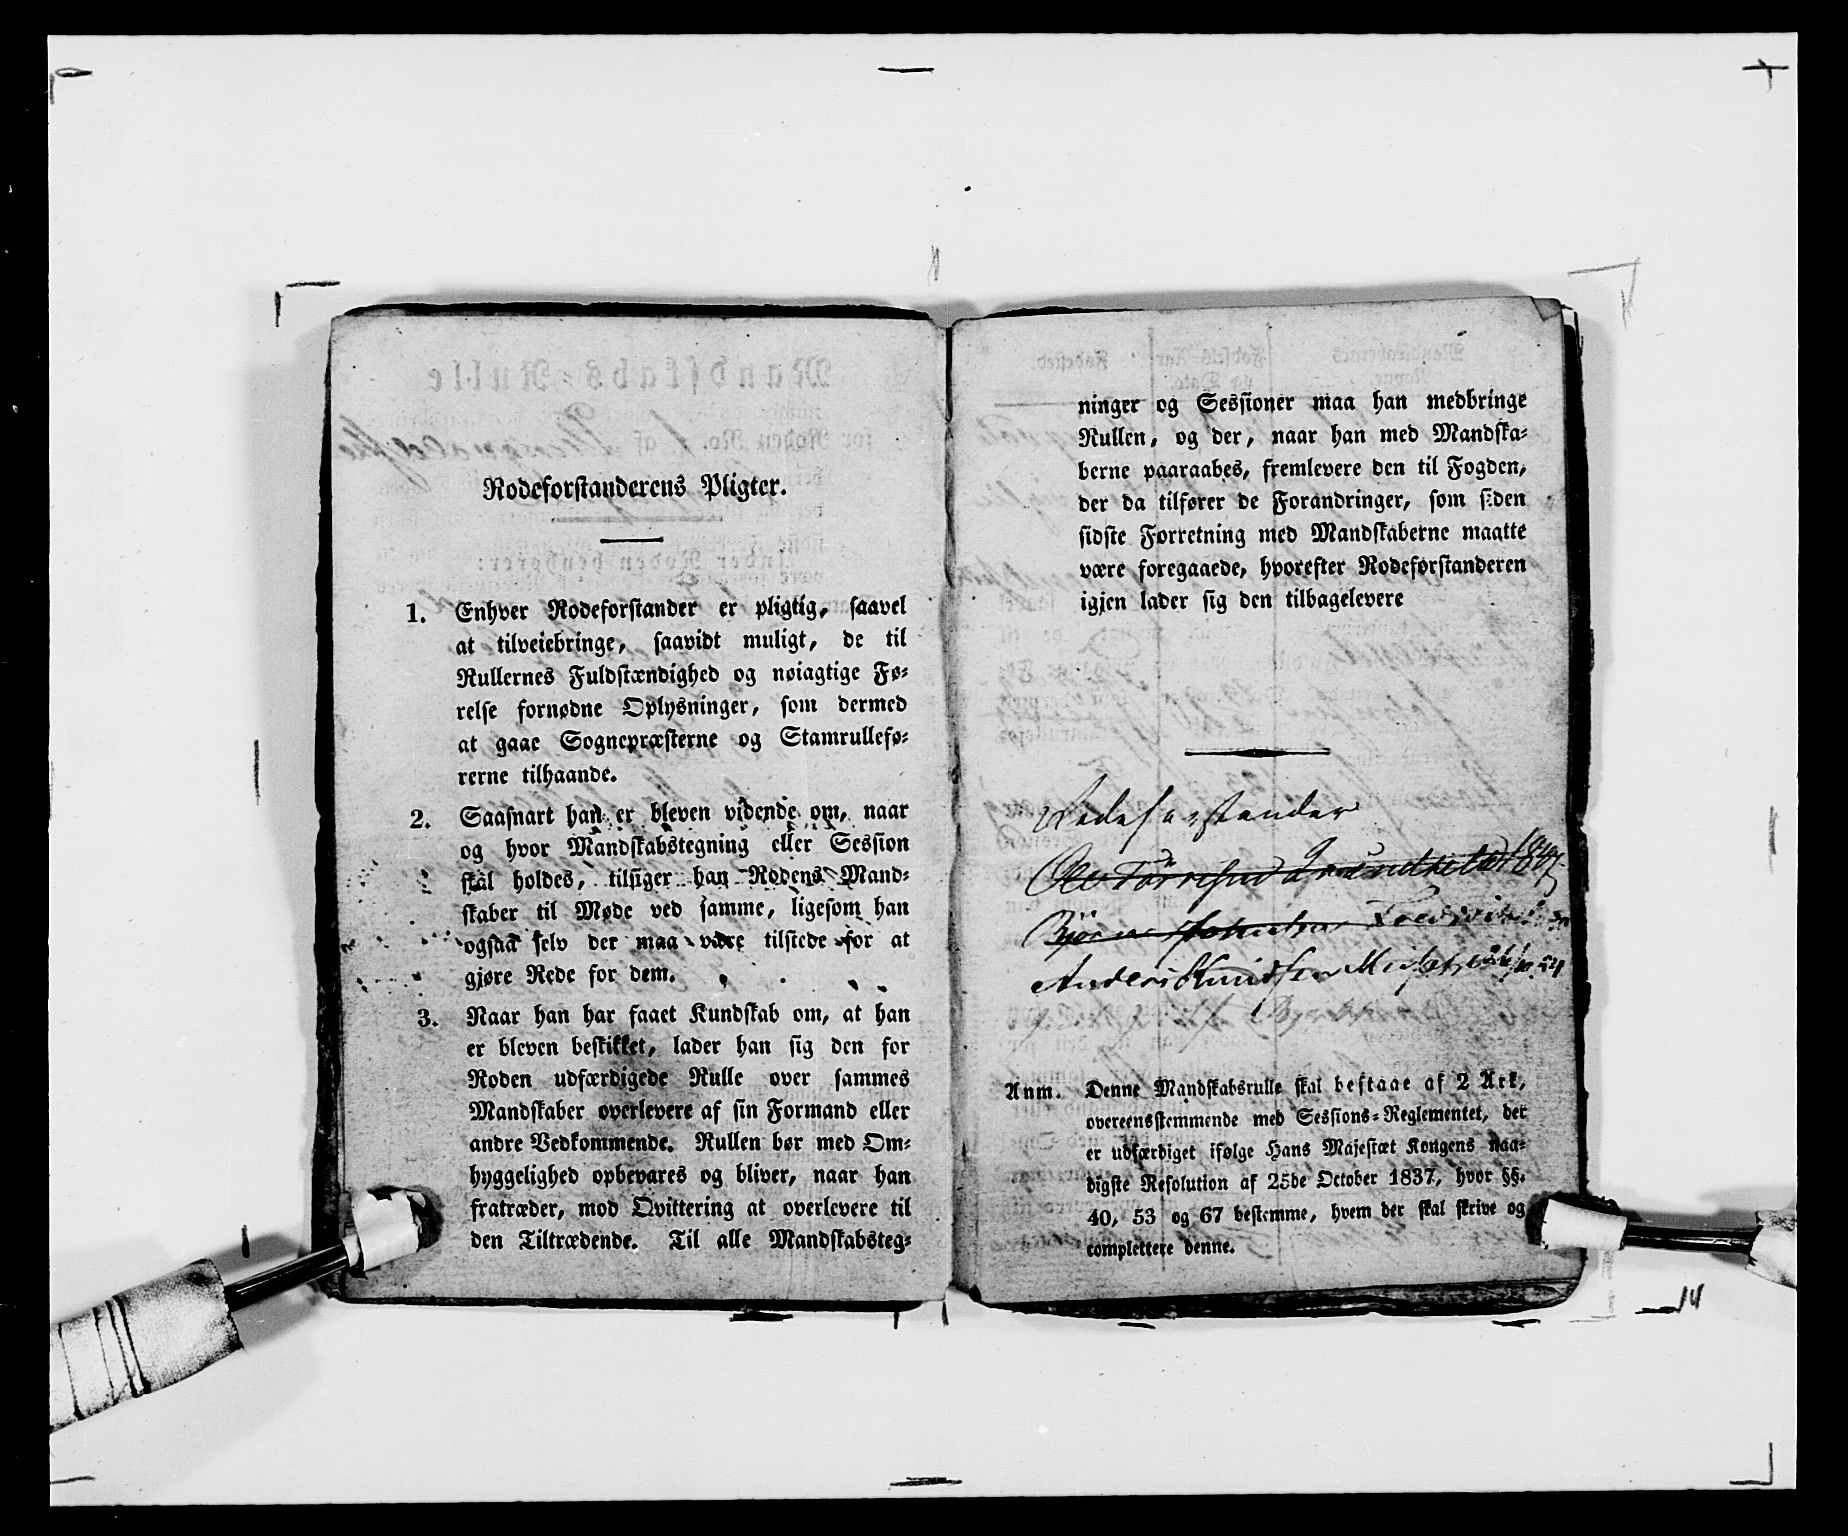 Rodeforstanderens Pligter.
1. Enhver Rodeforstander er pligtig, saavel
at tilveiebringe, saavidt muligt, de til
Rullernes Fuldstændighed og nøiagtige Fø-
relse fornødne Oplysninger, som dermed
at gaae Sognepræsterne og Stamrullefø-
rerne tilhaande.
2. Saasnart han er bleven vidende om, naar
og hvor Mandskabstegning eller Session
skal holdes, tilsiger han Rodens Mand-
skaber til Møde ved samme, ligesom han
ogsaa selv der maa være tilstede for at
gjøre Rede for dem.
3. Naar han har faaet Kundskab om, at han
er bleven beskikket, lader han sig den for
Roden udfærdigede Rulle over sammes
Mandskaber overlevere af sin Formand eller
andre Vedkommende. Rullen bør med Om-
hyggelighed opbevares og bliver, naar han
fratræder, mod Qvittering at overlevere til
den Tiltrædende. Til alle Mandskabsteg-
ninger og Sessioner maa han medbringe
Rullen, og der, naar han med Mandska-
berne paaraabes, fremlevere den til Fogden,
der da tilfører de Forandringer, som siden
sidste Forretning med Mandskaberne maatte
være foregaaede, hvorefter Rodeforstanderen
igjen lader sig den tilbagelevere
Rodeforstander
Ole
Anders Knudsen
Anm. Denne Mandskabsrulle skal bestaae af 2 Ark,
overeensstemmende med Sessions-Reglementet, der
er udfærdiget ifølge Hans Majestæt Kongens naa-
digste Resolution af 25de October 1837, hvor §§.
40, 53 og 67 bestemme, hvem der skal skrive og
complettere denne.
14